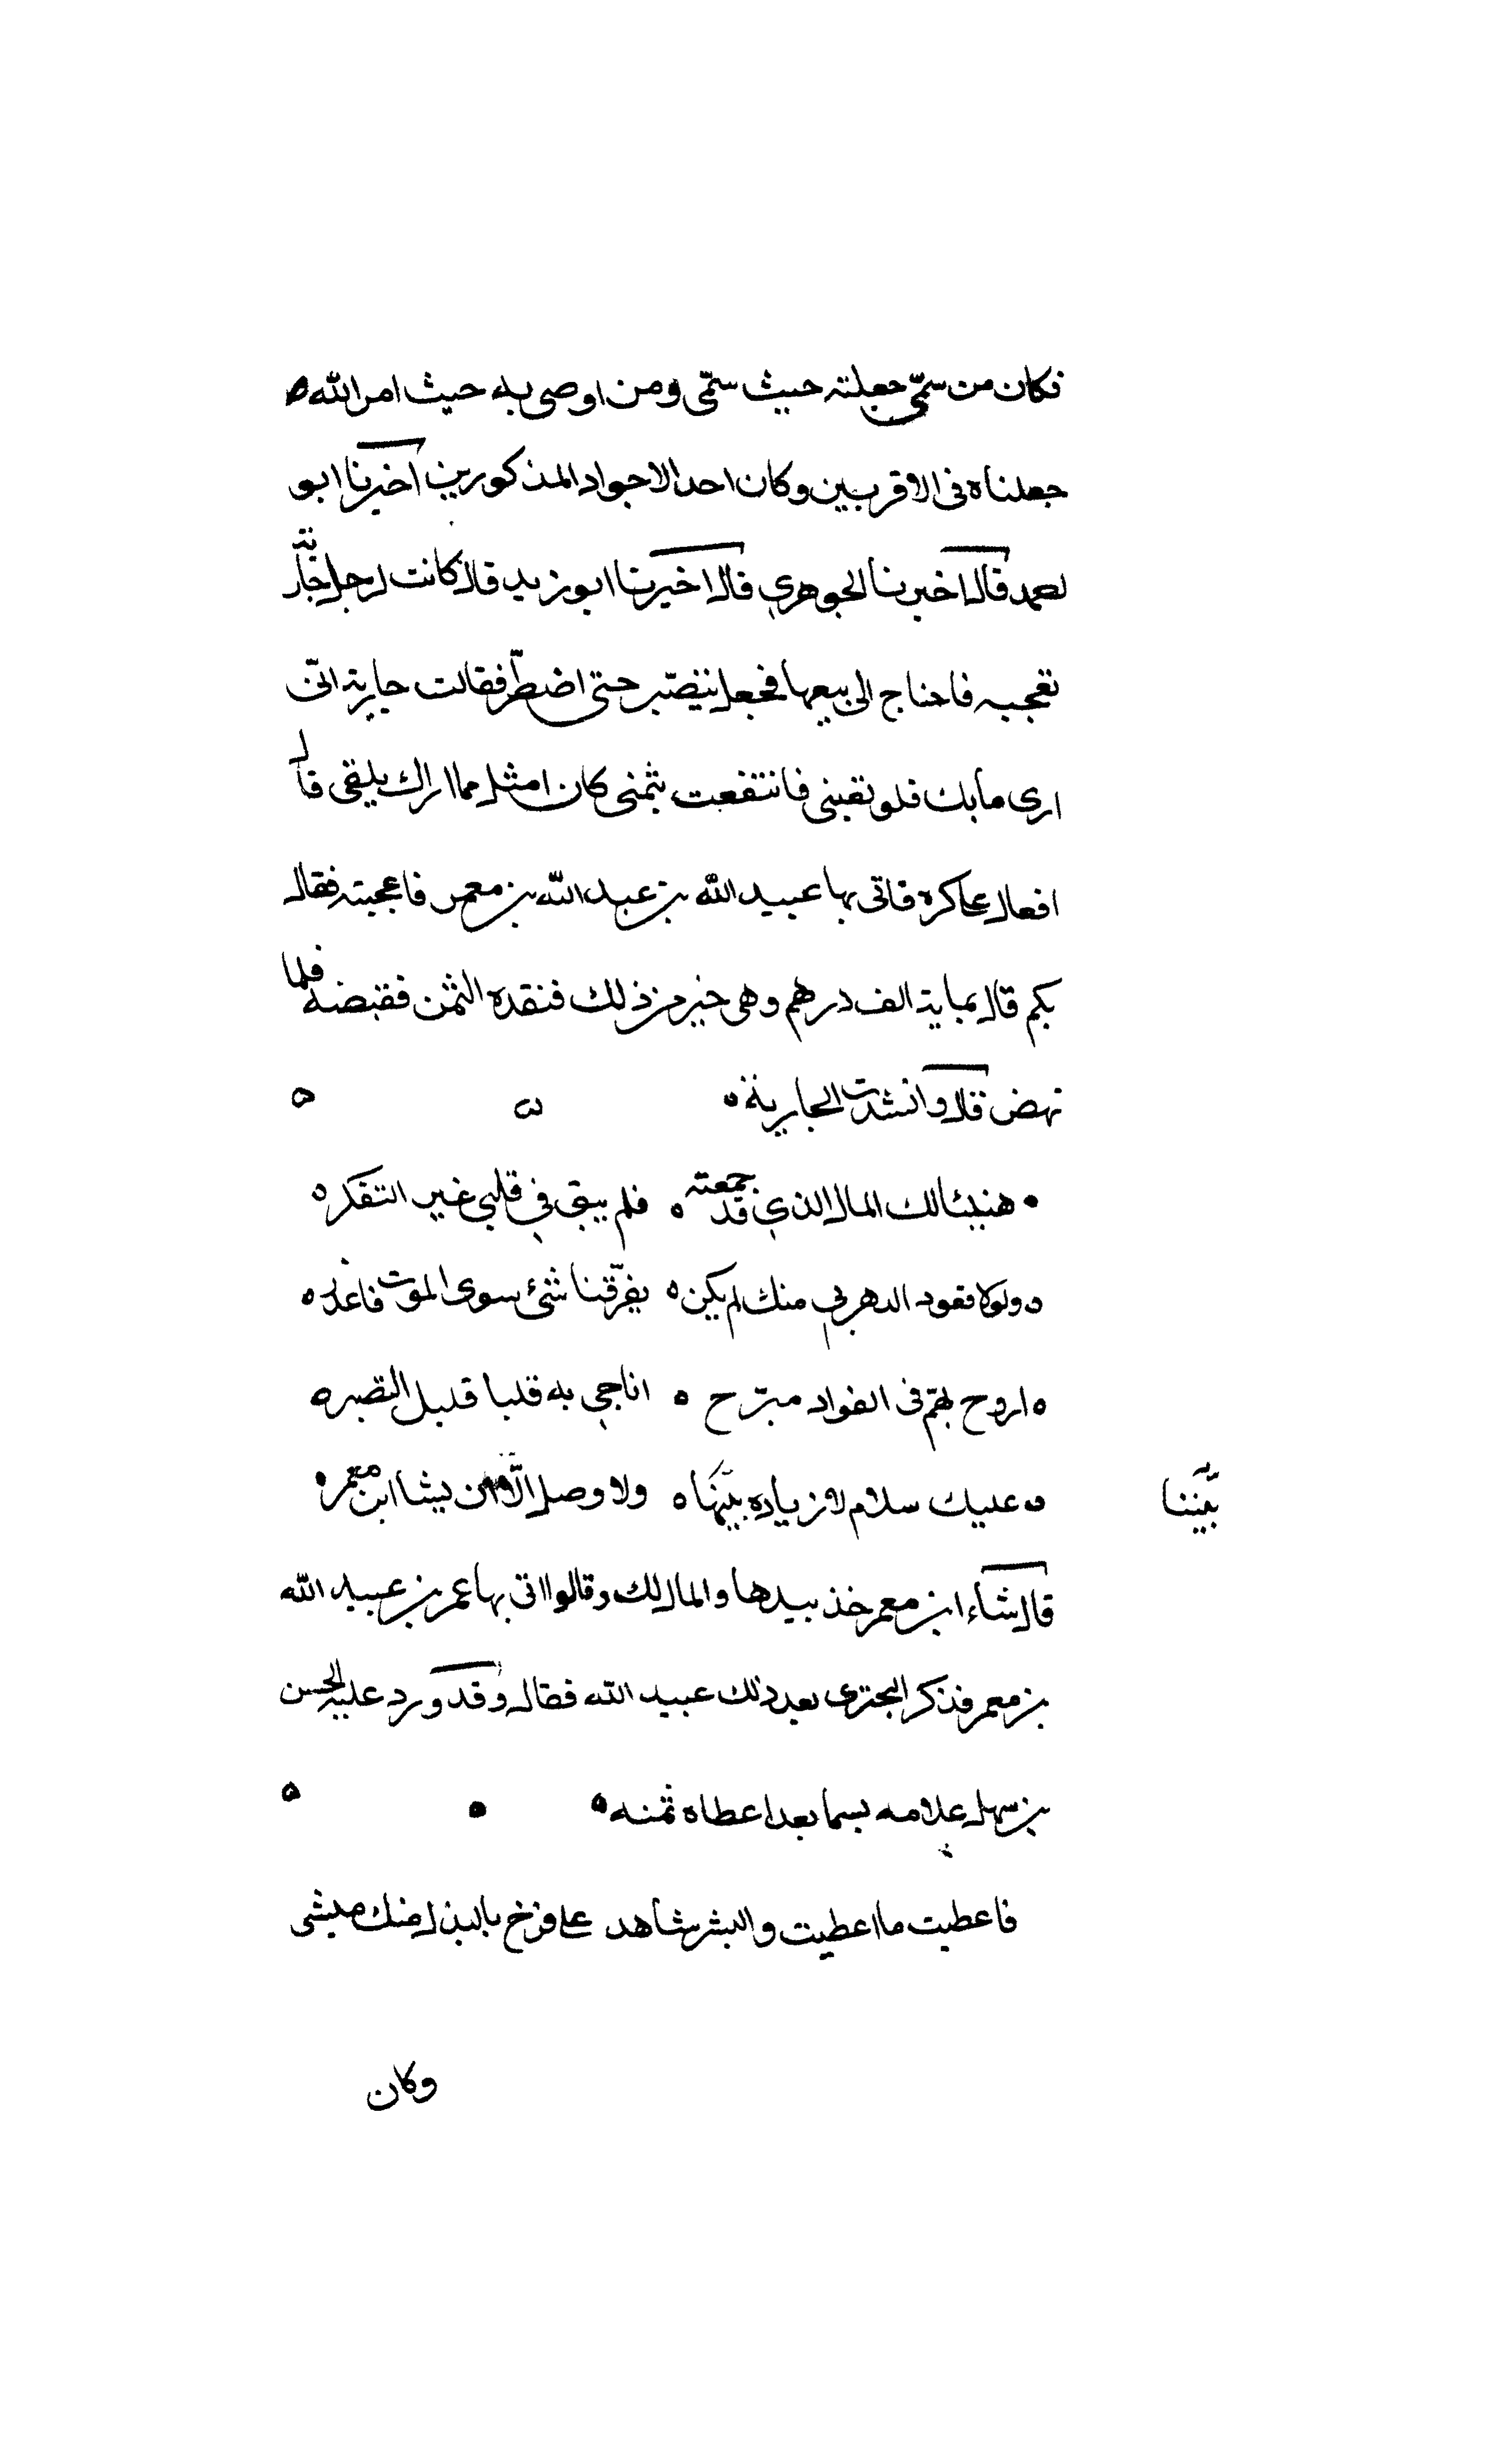 فكان من سمّى جعلته حيث سمّى ومن اوصى به حيث امر الله
جعلناه فى الاقربين وكان احد الاجواد المذكورين اخبرنا ابو
احمد قال اخبرنا الجوهري قال اخبرنا ابو زيد قال كانت لرجل جارية
تعجبه فاحتاج الى بيعها فجعل يتصبّر حتى اضطرّ فقالت جاريته انى
ارى مابك فلو بعتنى فانتفعت بثمنى كان امثل مما اراك بلقى قال
افعل على كره فاتى بها عبيد الله بن عبد الله بن معمر فاعجبته فقال
بكم قال بماية الف درهم وهى خير من ذلك فنقده الثمن فقبضه فلما
نهض قال وانشدت الجارية
هنيئا لك المال الذي قد جمعته فلم يبق في قلبي غير التفكر
ولولا قعود الدهر بي منك لم يكن يفرّقنا شئ سوى الموت فاعذر
اروح بهمّ فى الفواد مبرّح اناجي به قلبا قليل التصبر
عليك سلام لا زياده بيننها ولا وصل الّا ان يشا ابن معمر
بيننا
قال شاء ابن معمر خذ بيدها والمال لك وقالوا اتى بها عمر بن عبيد الله
بن معمر فذكر البحترى بعد ذلك عبيد الله فقال وقد ورد عليه الحسن
بن سهل غلامه بسما بعد اعطاه ثمنه
فاعطيت ما اعطيت والبشر شاهد على فرح بالبذل منك مبشى
وكان